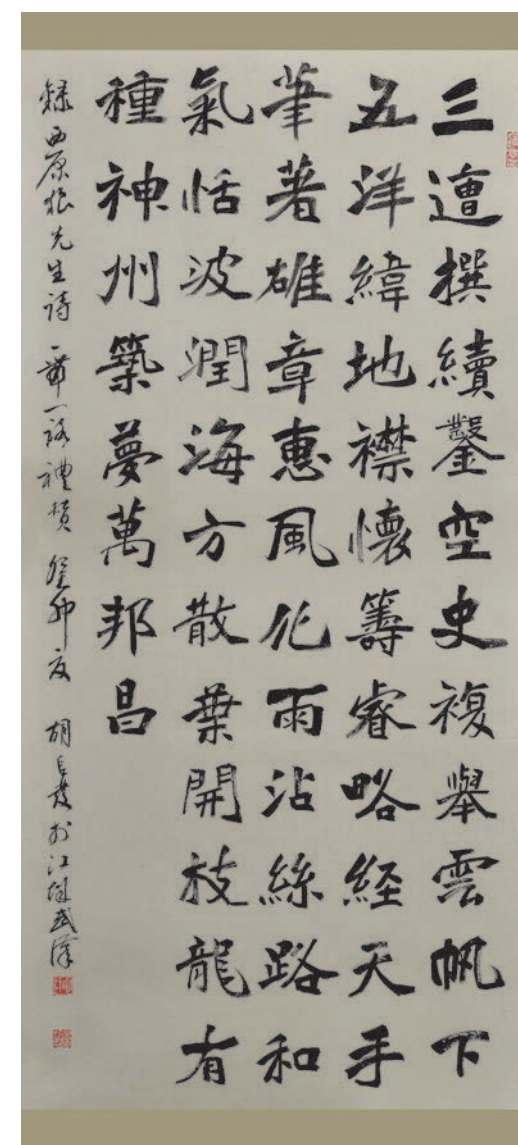 三遭撰續鑿空史複舉雲帆下
五洋緯地襟懷籌睿略経天手
筆著雄章惠風化雨沾絲路和
氣恬波潤海方散葉開枝龍有
種神州築夢萬邦昌
錄西原狼先生詩一帶一路禮贊 癸卯夏 胡於江城武漢